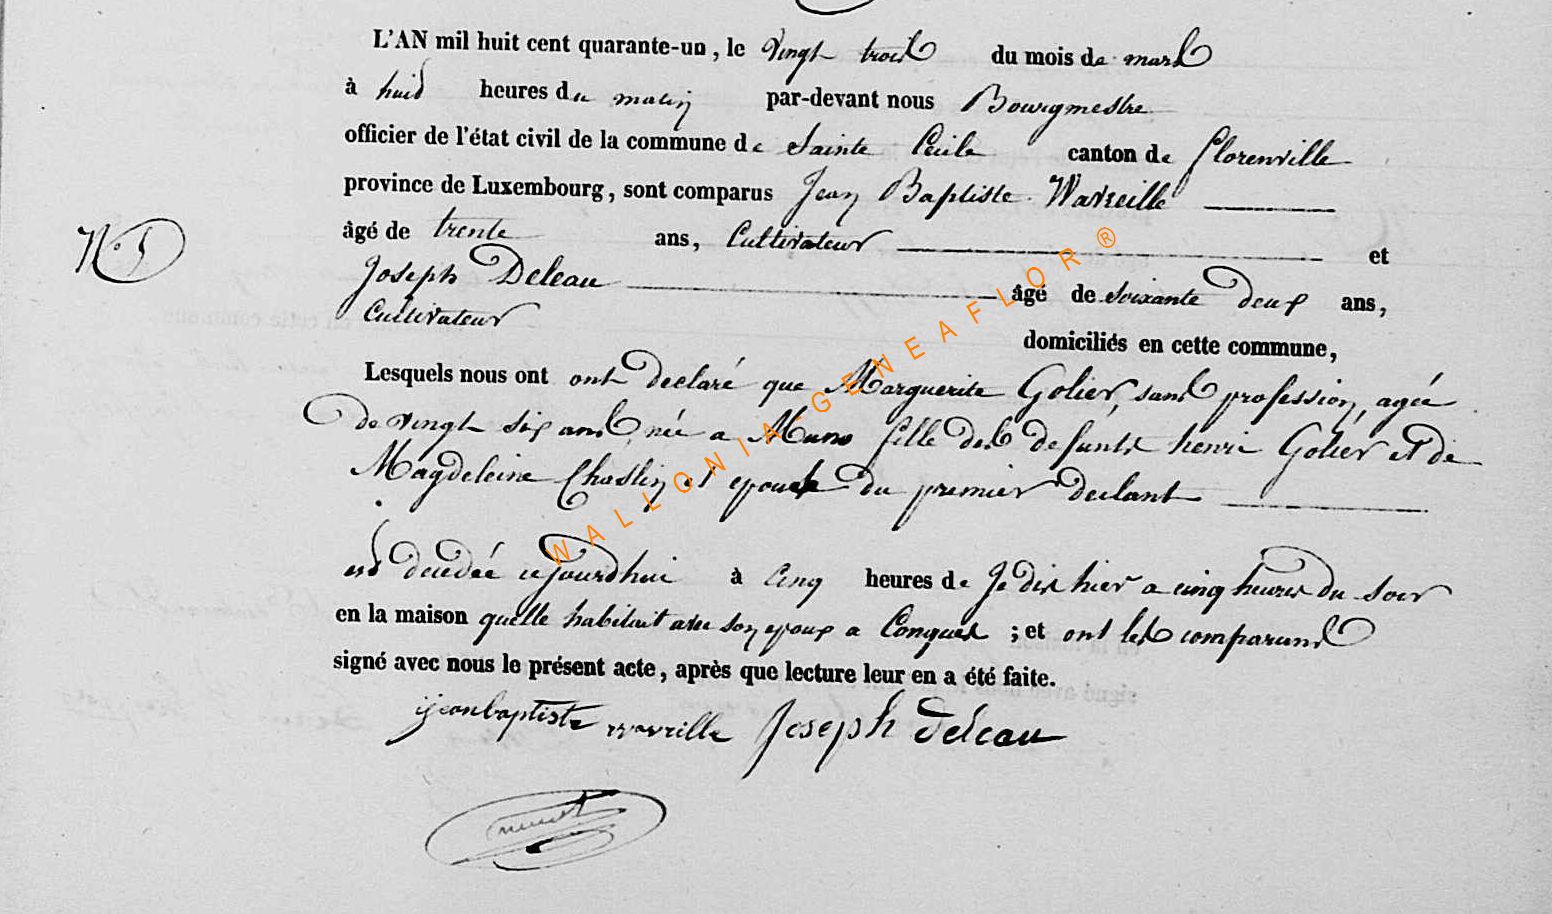 L'AN mil huit cent quarante-un, le vingt trois du mois de mars
à huit heures du matin par-devant nous Bourgmestre
officier de l'état civil de la commune de Sainte Cecile canton de florenville
province de Luxembourg, sont comparus Jean Baptiste Wavreille
âgé de trente ans, Cultivateur et
N° 5
Joseph Deleau âgé de soixante deux ans,
Cultivateur
domiciliés en cette commune,
Lesquels nous ont ont declaré que Marguerite Golier, sans profession, agée
de vingt six ans, née a Muno fille des defunts henri Golier et de
Magdeleine Chaslin et epouse du premier declant
est decedée cejourdhui à cinq heures de Je dis hier a cinq heures du soir
en la maison quelle habituit avec son epoux a Conques ; et ont les comparuns
signé avec nous le présent acte, après que lecture leur en a été faite.
jeanbaptiste wavrille Joseph deleau
WALLONIA-GENEAFLOR®